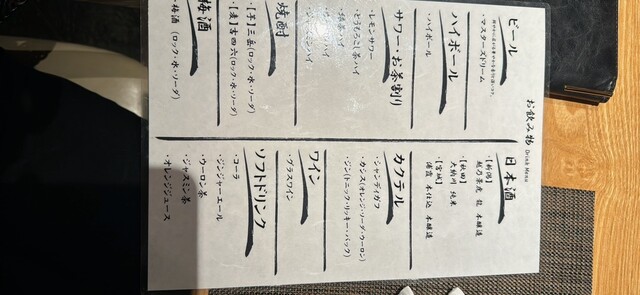 お飲み物 Drink Menu
ビール
・マスターズドリーム
ハイボール
・ハイボール
サワー・お茶割り
・レモンサワー
・とうもろこし茶ハイ
・緑茶ハイ
焼酎
・【芋】三岳(ロック・水・ソーダ)
・【麦】吉四六(ロック・水・ソーダ)
梅酒
・梅酒(ロック・水・ソーダ)
日本酒
・【新潟】
越乃景虎 龍 本醸造
・【秋田】
大納川 純米
・【宮城】
浦霞 本仕込 本醸造
カクテル
・シャンディガフ
・カシス(オレンジ・ソーダ・ウーロン)
・ジン(トニック・リッキー・バック)
ワイン
・グラスワイン
ソフトドリンク
・コーラ
・ジンジャーエール
・ウーロン茶
・ジャスミン茶
・オレンジジュース